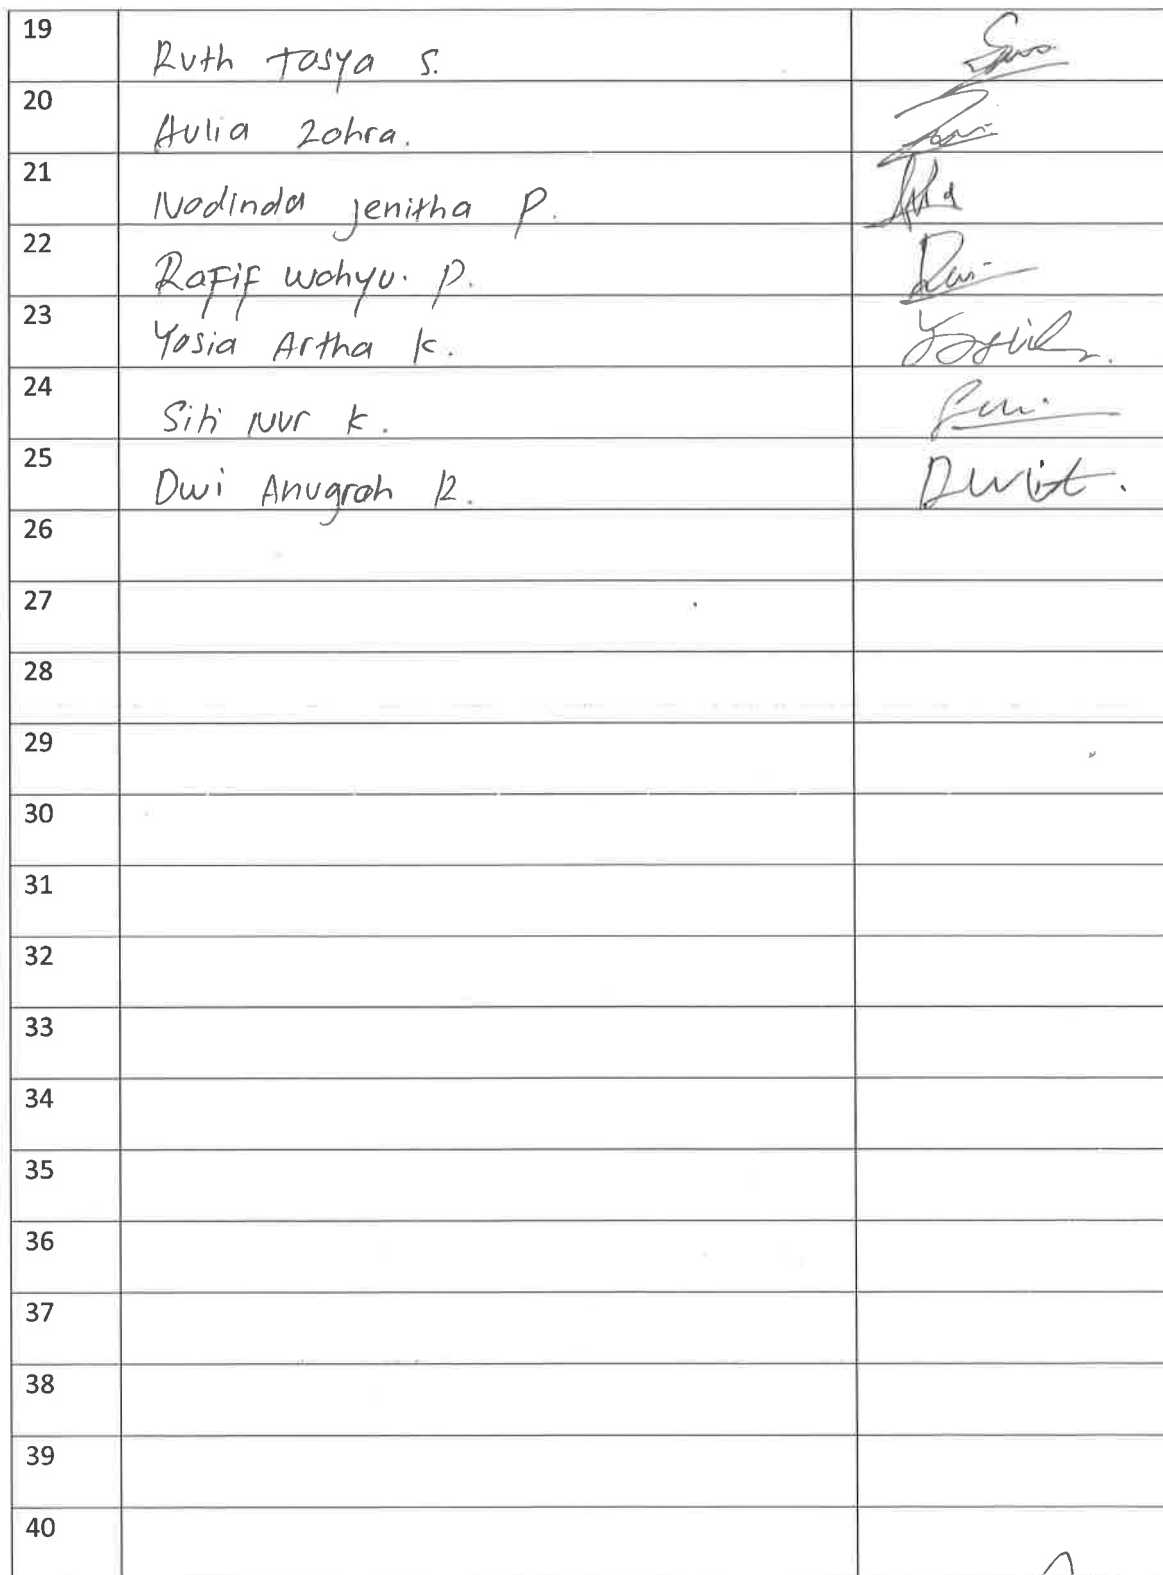 19 Ruth Tasya S.
20 Aulia Zohra.
21 Nadinda Jenitha P.
22 Rafif Wahyu. P.
23 Yosia Artha K.
24 Siti Nur K.
25 Dwi Anugrah R.
26
27
28
29
30
31
32
33
34
35
36
37
38
39
40